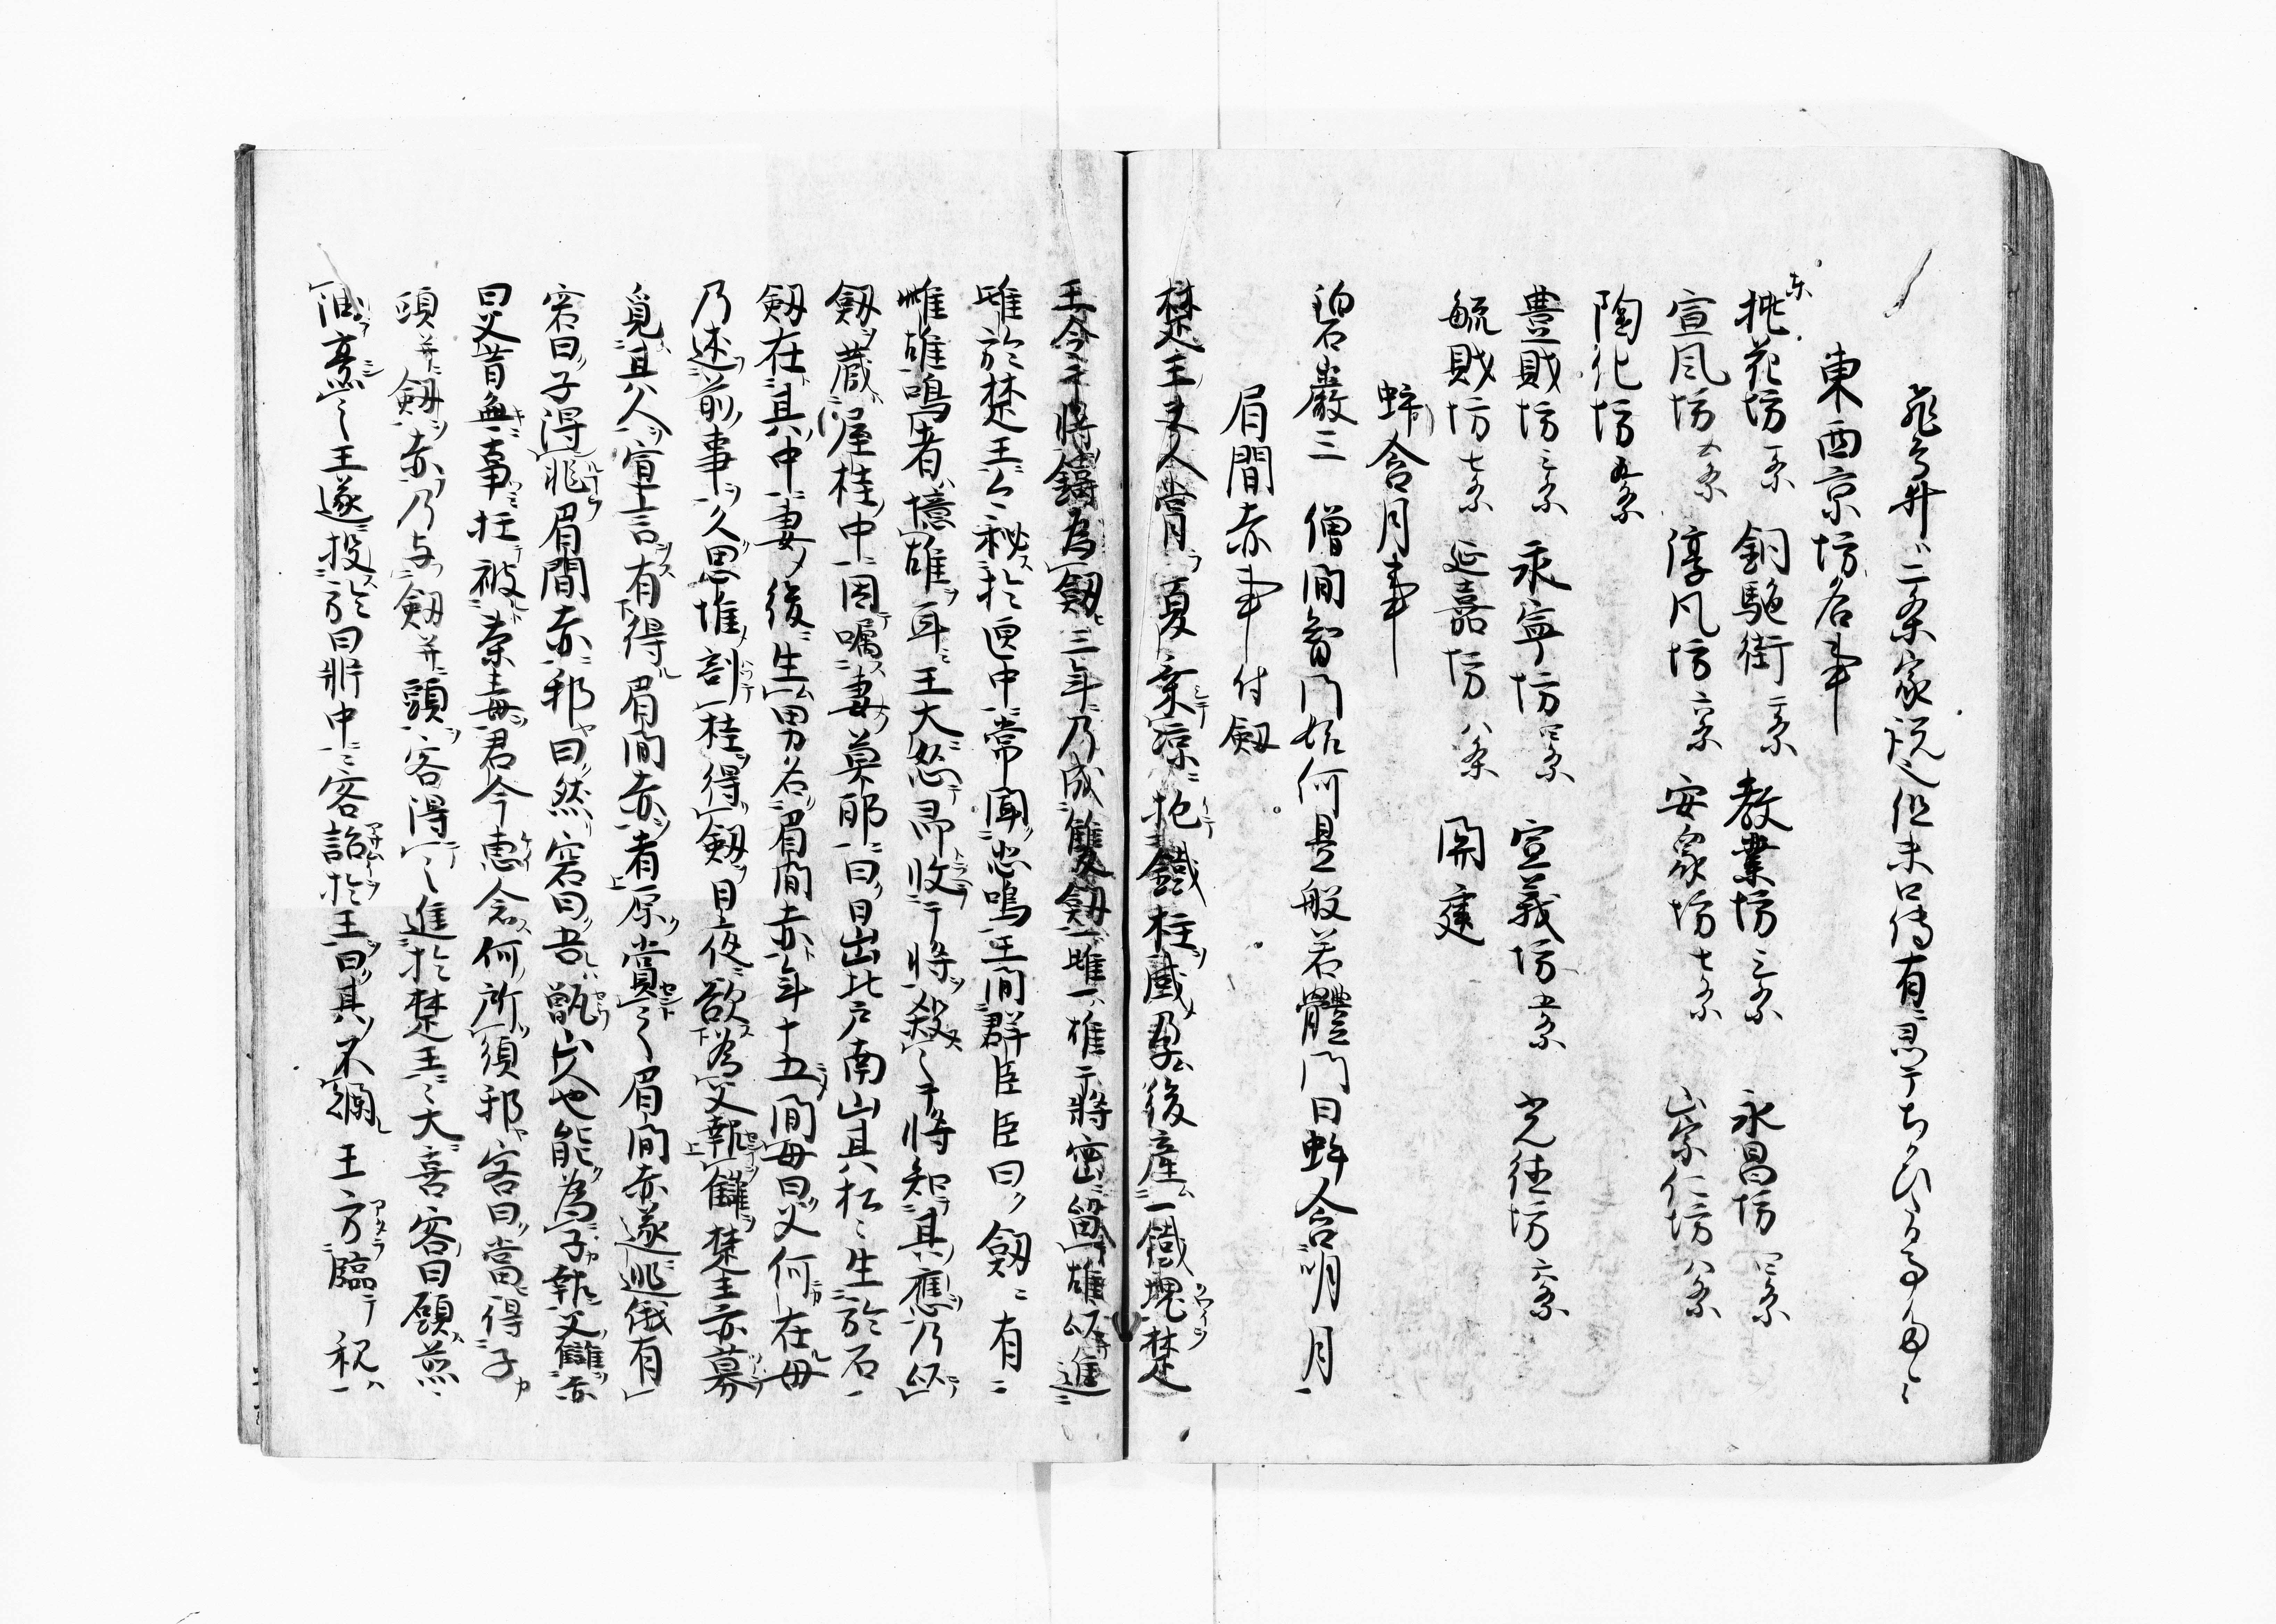 飛鳥井ハ二条家説也但未口傳有
東西京坊名事
東桃花坊一条 銅駝街二条 教業坊三条 永昌坊四条
宣風坊五条 淳風坊六条 安衆坊七条 崇仁坊八条
陶化坊九条
豊財坊三条 永寧坊四条 宣義坊五条 光徳坊六条
毓財坊七条 延嘉坊八条 開建
蚌含月事
碧巖三 僧問智門如何是般若體門曰蚌含明月
眉間赤事 付剱
楚王夫人嘗夏乗凉抱鐵柱感孕後産一鐵塊楚
王令干將鑄為剱三年乃成雙剱一雌一雄干將密留雄以進
雌於楚王々秘於匣中常聞悲鳴王問群臣臣曰剱有
雌雄鳴者憶雄耳王大怒即收干將殺之干將知其應乃以
剱藏屋柱中因嘱妻莫耶曰日出北戸南山其松々生於石
剱在其中妻後生男名眉間赤年十五問母曰父何在母
乃述前事久思惟剖柱得剱日夜欲為父報讎楚王亦募
覓其人宣言有得眉間赤者厚賞之眉間赤遂逃俄有
客曰子得非眉間赤邪曰然客曰吾甑山人也能為子報父讎赤
曰父昔無辜枉被荼毒君今恵念何所須邪客曰當得子
頭并剱赤乃与剱并頭客得之進於楚王々大喜客曰願煎
油烹之王遂投於鼎中客詒於王曰其不爛王方臨視